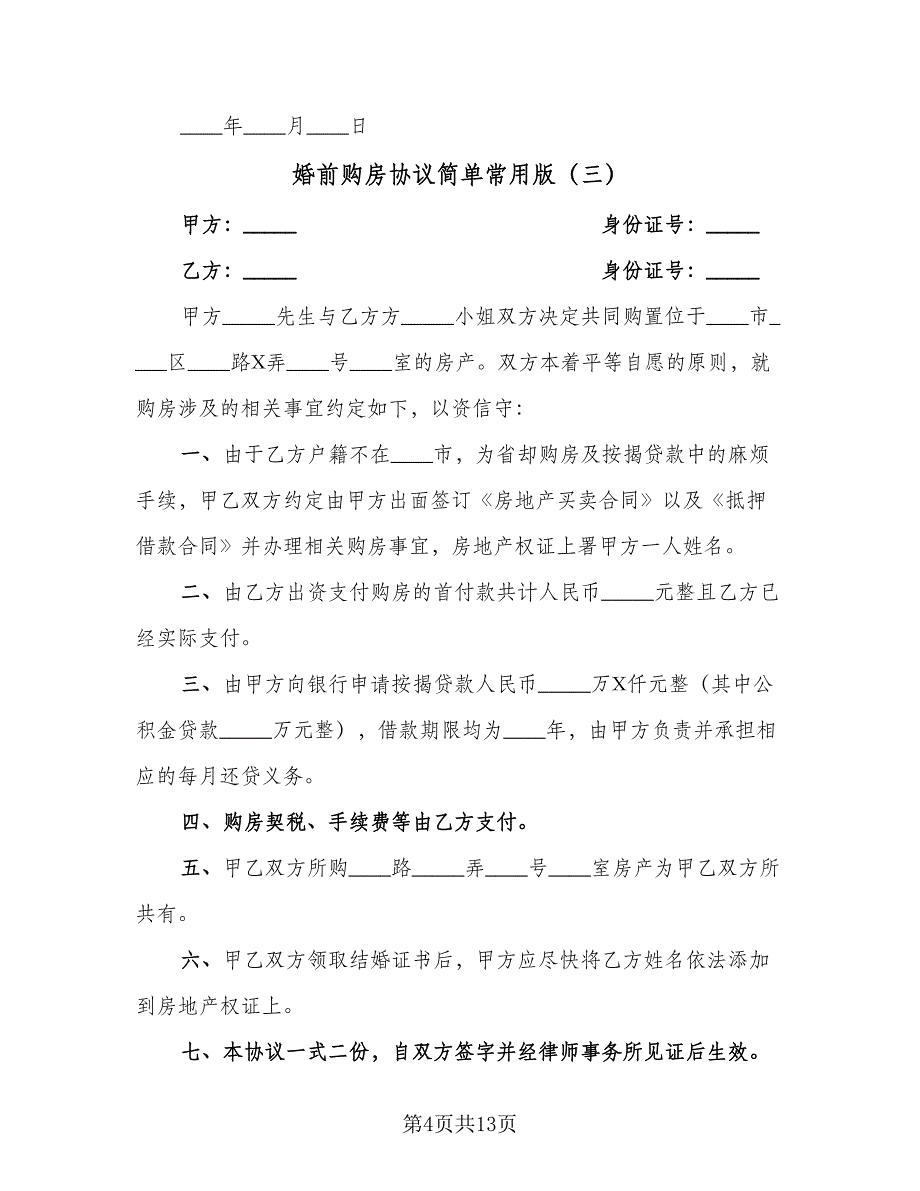 ____年____月____日
婚前购房协议简单常用版（三）
甲方：_____ 身份证号：_____
乙方：_____ 身份证号：_____
甲方_____先生与乙方方_____小姐双方决定共同购置位于____市_
___区____路X弄____号____室的房产。双方本着平等自愿的原则，就
购房涉及的相关事宜约定如下，以资信守：
一、由于乙方户籍不在____市，为省却购房及按揭贷款中的麻烦
手续，甲乙双方约定由甲方出面签订《房地产买卖合同》以及《抵押
借款合同》并办理相关购房事宜，房地产权证上署甲方一人姓名。
二、由乙方出资支付购房的首付款共计人民币_____元整且乙方已
经实际支付。
三、由甲方向银行申请按揭贷款人民币_____万X仟元整（其中公
积金贷款_____万元整），借款期限均为____年，由甲方负责并承担相
应的每月还贷义务。
四、购房契税、手续费等由乙方支付。
五、甲乙双方所购____路_____弄____号____室房产为甲乙双方所
共有。
六、甲乙双方领取结婚证书后，甲方应尽快将乙方姓名依法添加
到房地产权证上。
七、本协议一式二份，自双方签字并经律师事务所见证后生效。
第4页共13页